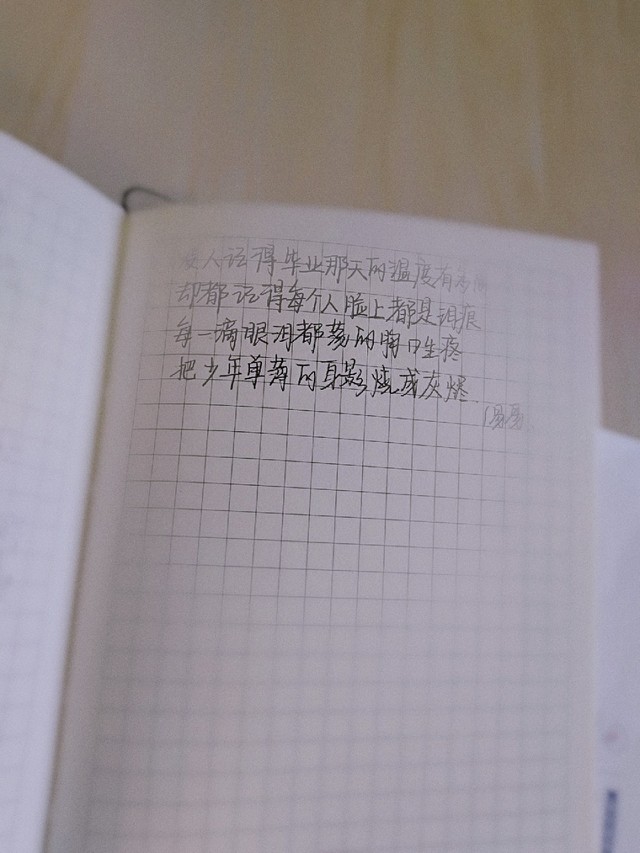 人记得毕业那天的温度有多
却都记得每个人脸上都是泪痕
每一滴眼泪都荡的胸口生疼
把少年单薄的身影烧成灰烬